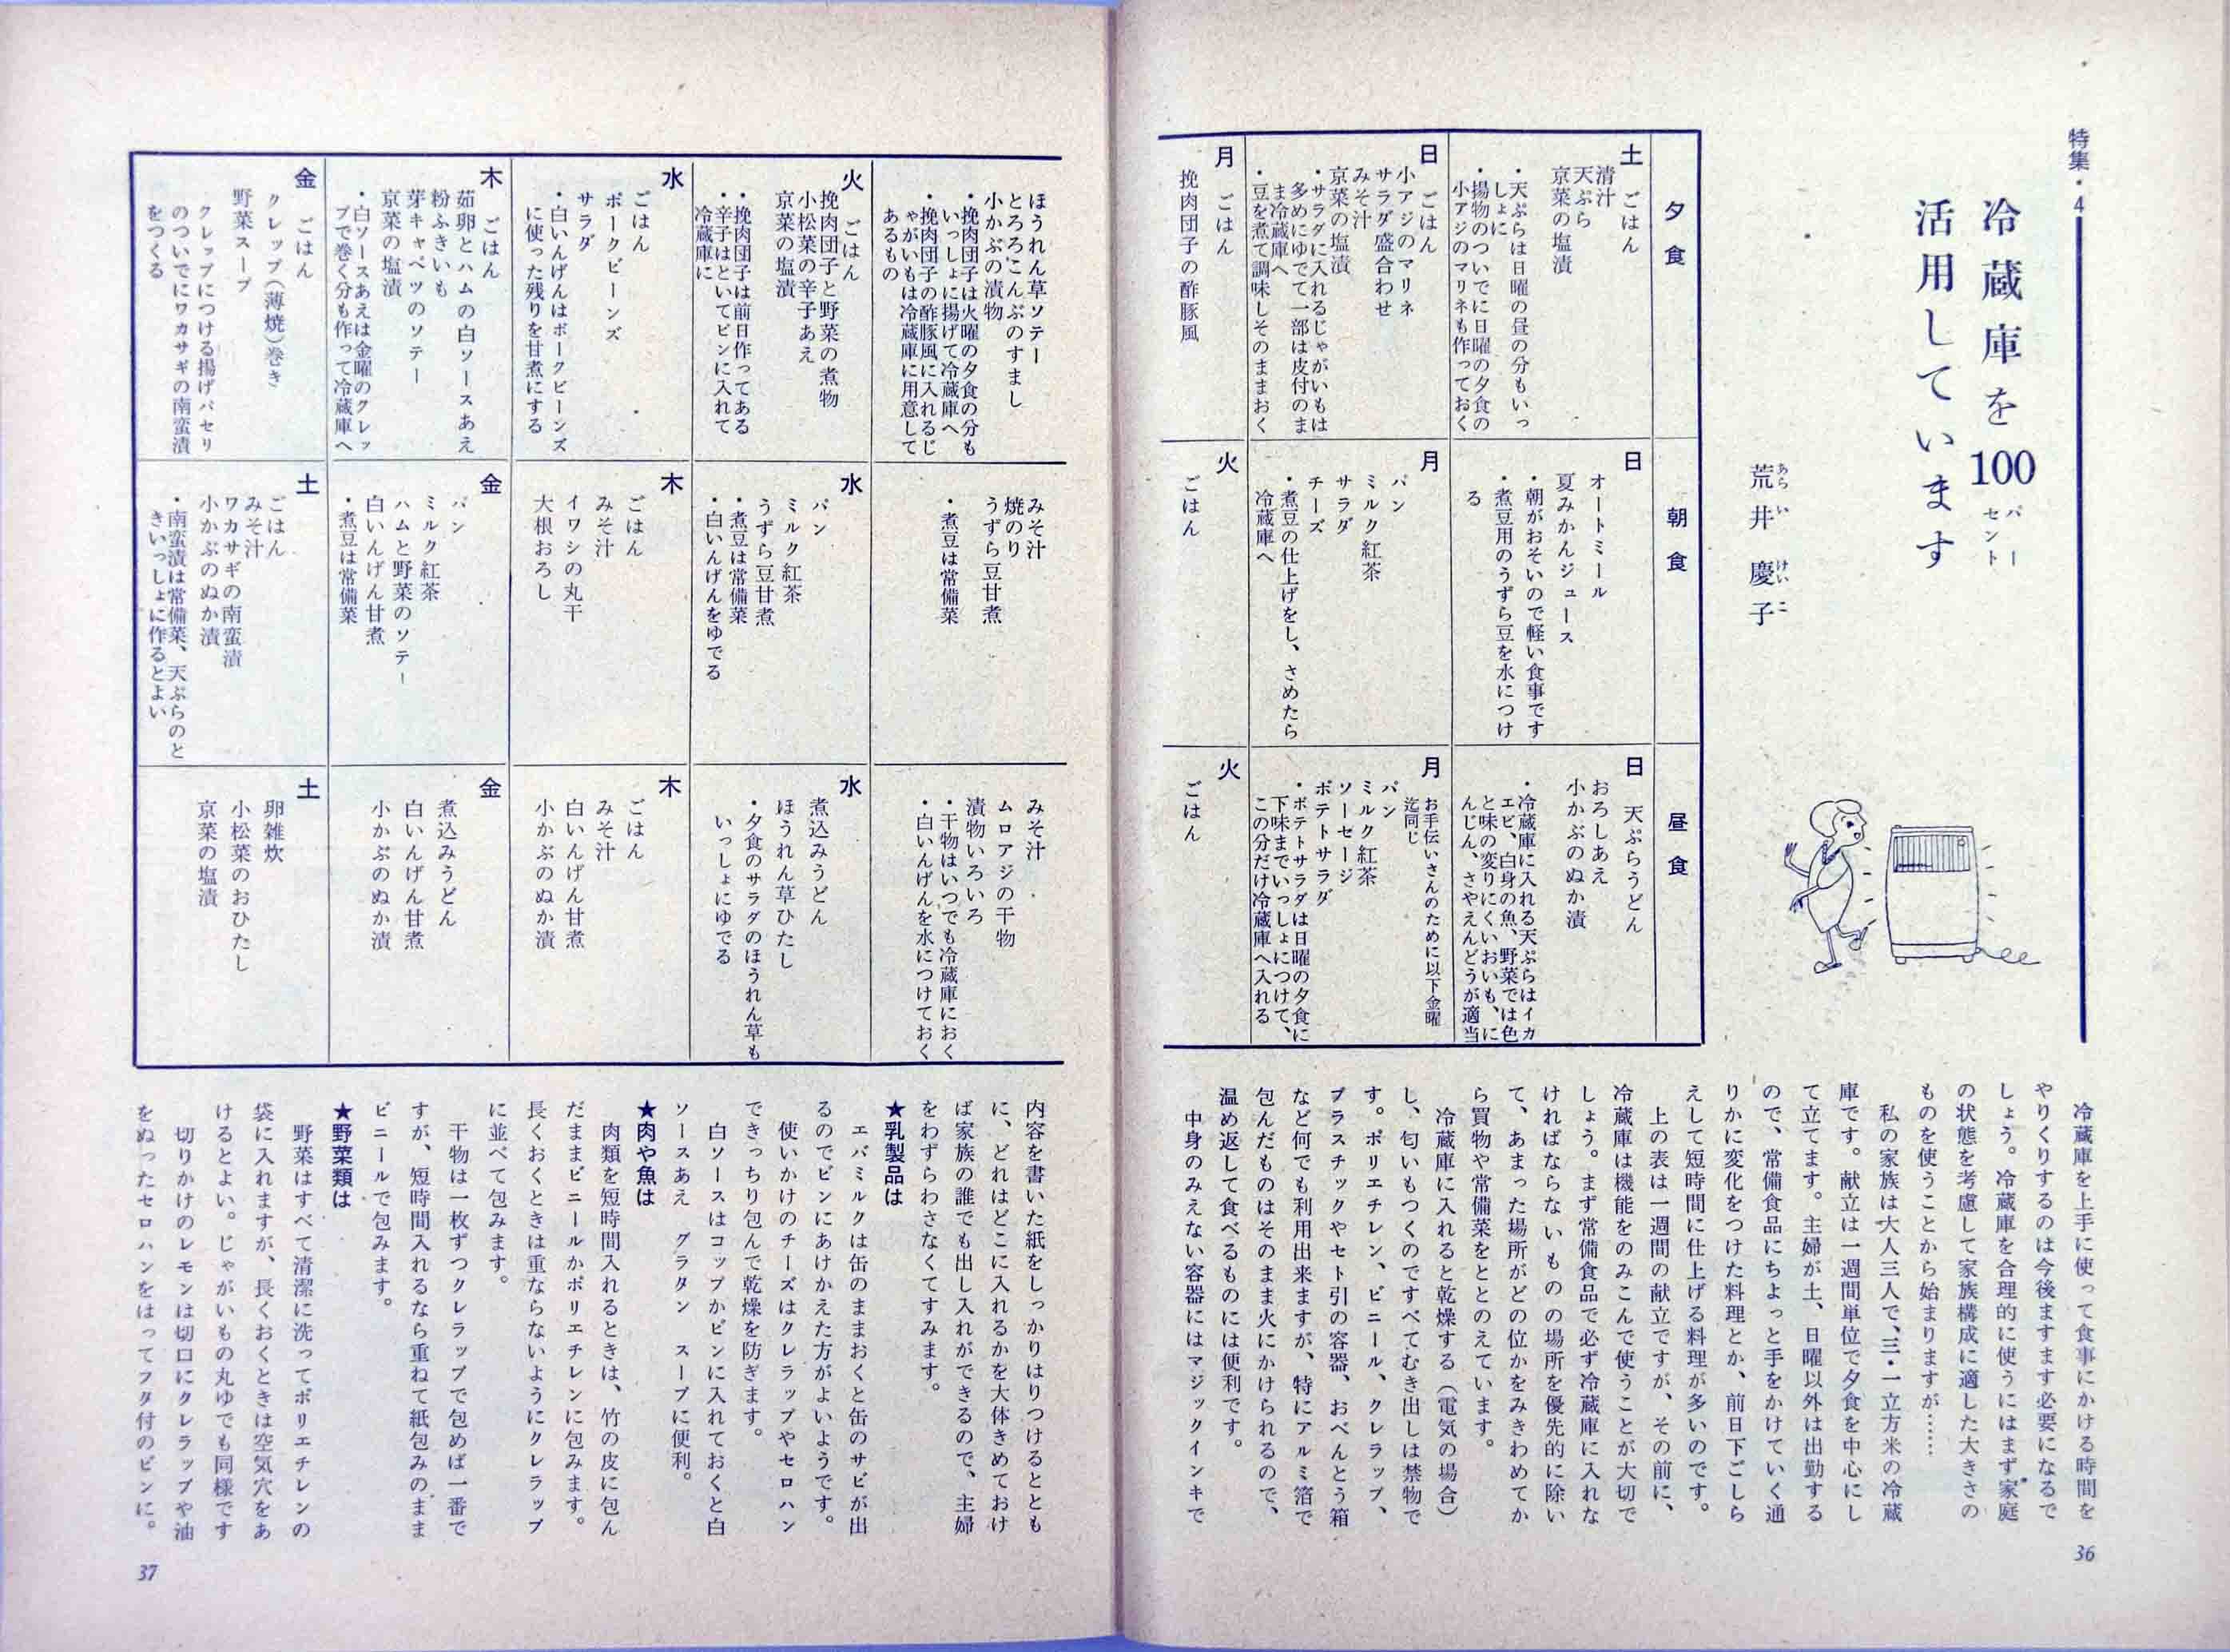 特集・4
冷蔵庫を100パーセント
活用しています
荒井慶子
あらいけいこ
夕食
土
ごはん
清汁
天ぷら
京菜の塩漬
・天ぷらは日曜の昼の分もいっ
しょに
・揚物のついでに日曜の夕食の
小アジのマリネも作っておく
日
ごはん
小アジのマリネ
サラダ盛合わせ
みそ汁
京菜の塩漬
・サラダに入れるじゃがいもは
多めにゆでて一部は皮付のま
ま冷蔵庫へ
・豆を煮て調味しそのままおく
月
ごはん
挽肉団子の酢豚風
朝食
日
オートミール
夏みかんジュース
・朝がおそいので軽い食事です
・煮豆用のうずら豆を水につけ
る
月
パン
ミルク紅茶
サラダ
チーズ
・煮豆の仕上げをし、さめたら
冷蔵庫へ
火
ごはん
昼食
日
天ぷらうどん
おろしあえ
小かぶのぬか漬
・冷蔵庫に入れる天ぷらはイカ
エビ、白身の魚、野菜では色
と味の変りにくいおいも、に
んじん、さやえんどうが適当
月
お手伝いさんのために以下金曜
迄同じ
パン
ミルク紅茶
ソーセージ
ポテトサラダ
・ポテトサラダは日曜の夕食に
下味までいっしょにつけて、
この分だけ冷蔵庫へ入れる
火
ごはん
冷蔵庫を上手に使って食事にかける時間を
やりくりするのは今後ますます必要になるで
しょう。冷蔵庫を合理的に使うにはまず家庭
の状態を考慮して家族構成に適した大きさの
ものを使うことから始まりますが……
私の家族は大人三人で、三・一立方米の冷蔵
庫です。献立は一週間単位で夕食を中心にし
て立てます。主婦が土、日曜以外は出勤する
ので、常備食品にちょっと手をかけていく通
りかに変化をつけた料理とか、前日下ごしら
えして短時間に仕上げる料理が多いのです。
上の表は一週間の献立ですが、その前に、
冷蔵庫は機能をのみこんで使うことが大切で
しょう。まず常備食品で必ず冷蔵庫に入れな
ければならないものの場所を優先的に除い
て、あまった場所がどの位かをみきわめてか
ら買物や常備菜をととのえています。
冷蔵庫に入れると乾燥する（電気の場合）
し、匂いもつくのですべてむき出しは禁物で
す。ポリエチレン、ビニール、クレラップ、
プラスチックやセト引の容器、おべんとう箱
など何でも利用出来ますが、特にアルミ箔で
包んだものはそのまま火にかけられるので、
温め返して食べるものには便利です。
中身のみえない容器にはマジックインキで
36
ほうれん草ソテー
とろろこんぶのすまし
小かぶの漬物
・挽肉団子は火曜の夕食の分も
いっしょに揚げて冷蔵庫へ
・挽肉団子の酢豚風に入れるじ
ゃがいもは冷蔵庫に用意して
あるもの
火
ごはん
挽肉団子と野菜の煮物
小松菜の辛子あえ
京菜の塩漬
・挽肉団子は前日作ってある
・辛子はといてビンに入れて
冷蔵庫に
水
ごはん
ポークビーンズ
サラダ
・白いんげんはポークビーンズ
に使った残りを甘煮にする
木
ごはん
茹卵とハムの白ソースあえ
粉ふきいも
芽キャベツのソテー
京菜の塩漬
・白ソースあえは金曜のクレッ
プで巻く分も作って冷蔵庫へ
金
ごはん
クレップ（薄焼）巻き
野菜スープ
クレップにつける揚げパセリ
のついでにワカサギの南蛮漬
をつくる
みそ汁
焼のり
うずら豆甘煮
・煮豆は常備菜
水
パン
ミルク紅茶
うずら豆甘煮
・煮豆は常備菜
・白いんげんをゆでる
木
ごはん
みそ汁
イワシの丸干
大根おろし
金
パン
ミルク紅茶
ハムと野菜のソテー
白いんげん甘煮
・煮豆は常備菜
土
ごはん
みそ汁
ワカサギの南蛮漬
小かぶのぬか漬
・南蛮漬は常備菜、天ぷらのと
きいっしょに作るとよい
みそ汁
ムロアジの干物
漬物いろいろ
・干物はいつでも冷蔵庫におく
・白いんげんを水につけておく
水
煮込みうどん
ほうれん草ひたし
・夕食のサラダのほうれん草も
いっしょにゆでる
木
ごはん
みそ汁
白いんげん甘煮
小かぶのぬか漬
金
煮込みうどん
白いんげん甘煮
小かぶのぬか漬
土
卵雑炊
小松菜のおひたし
京菜の塩漬
内容を書いた紙をしっかりはりつけるととも
に、どれはどこに入れるかを大体きめておけ
ば家族の誰でも出し入れができるので、主婦
をわずらわさなくてすみます。
★乳製品は
エバミルクは缶のままおくと缶のサビが出
るのでビンにあけかえた方がよいようです。
使いかけのチーズはクレラップやセロハン
できっちり包んで乾燥を防ぎます。
白ソースはコップかビンに入れておくと白
ソースあえ　グラタン　スープに便利。
★肉や魚は
肉類を短時間入れるときは、竹の皮に包ん
だままビニールかポリエチレンに包みます。
長くおくときは重ならないようにクレラップ
に並べて包みます。
干物は一枚ずつクレラップで包めば一番で
すが、短時間入れるなら重ねて紙包みのまま
ビニールで包みます。
★野菜類は
野菜はすべて清潔に洗ってポリエチレンの
袋に入れますが、長くおくときは空気穴をあ
けるとよい。じゃがいもの丸ゆでも同様です
切りかけのレモンは切口にクレラップや油
をぬったセロハンをはってフタ付のビンに。
37